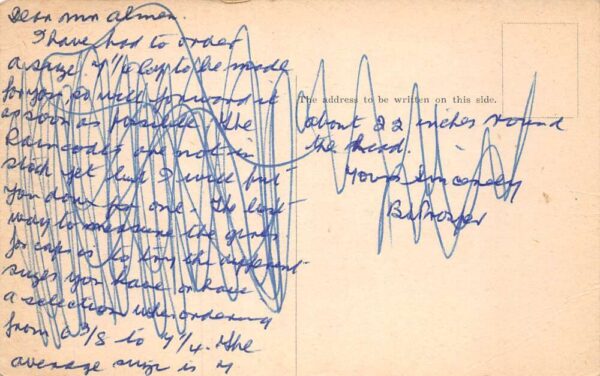 Dear Mr Almen.
I have had to order
a size 7 1/8 Cap to be made
for you, so will forward it
as soon as possible, the
Raincoats are not in
stock yet but I will put
you down for one. The best
way to measure the
for caps is to try the different
sizes you have or have
a selection when ordering
from 6 3/8 to 7 1/4. The
average size is 7
The address to be written on this side.
about 22 inches round
the head.
Yours Sincerely